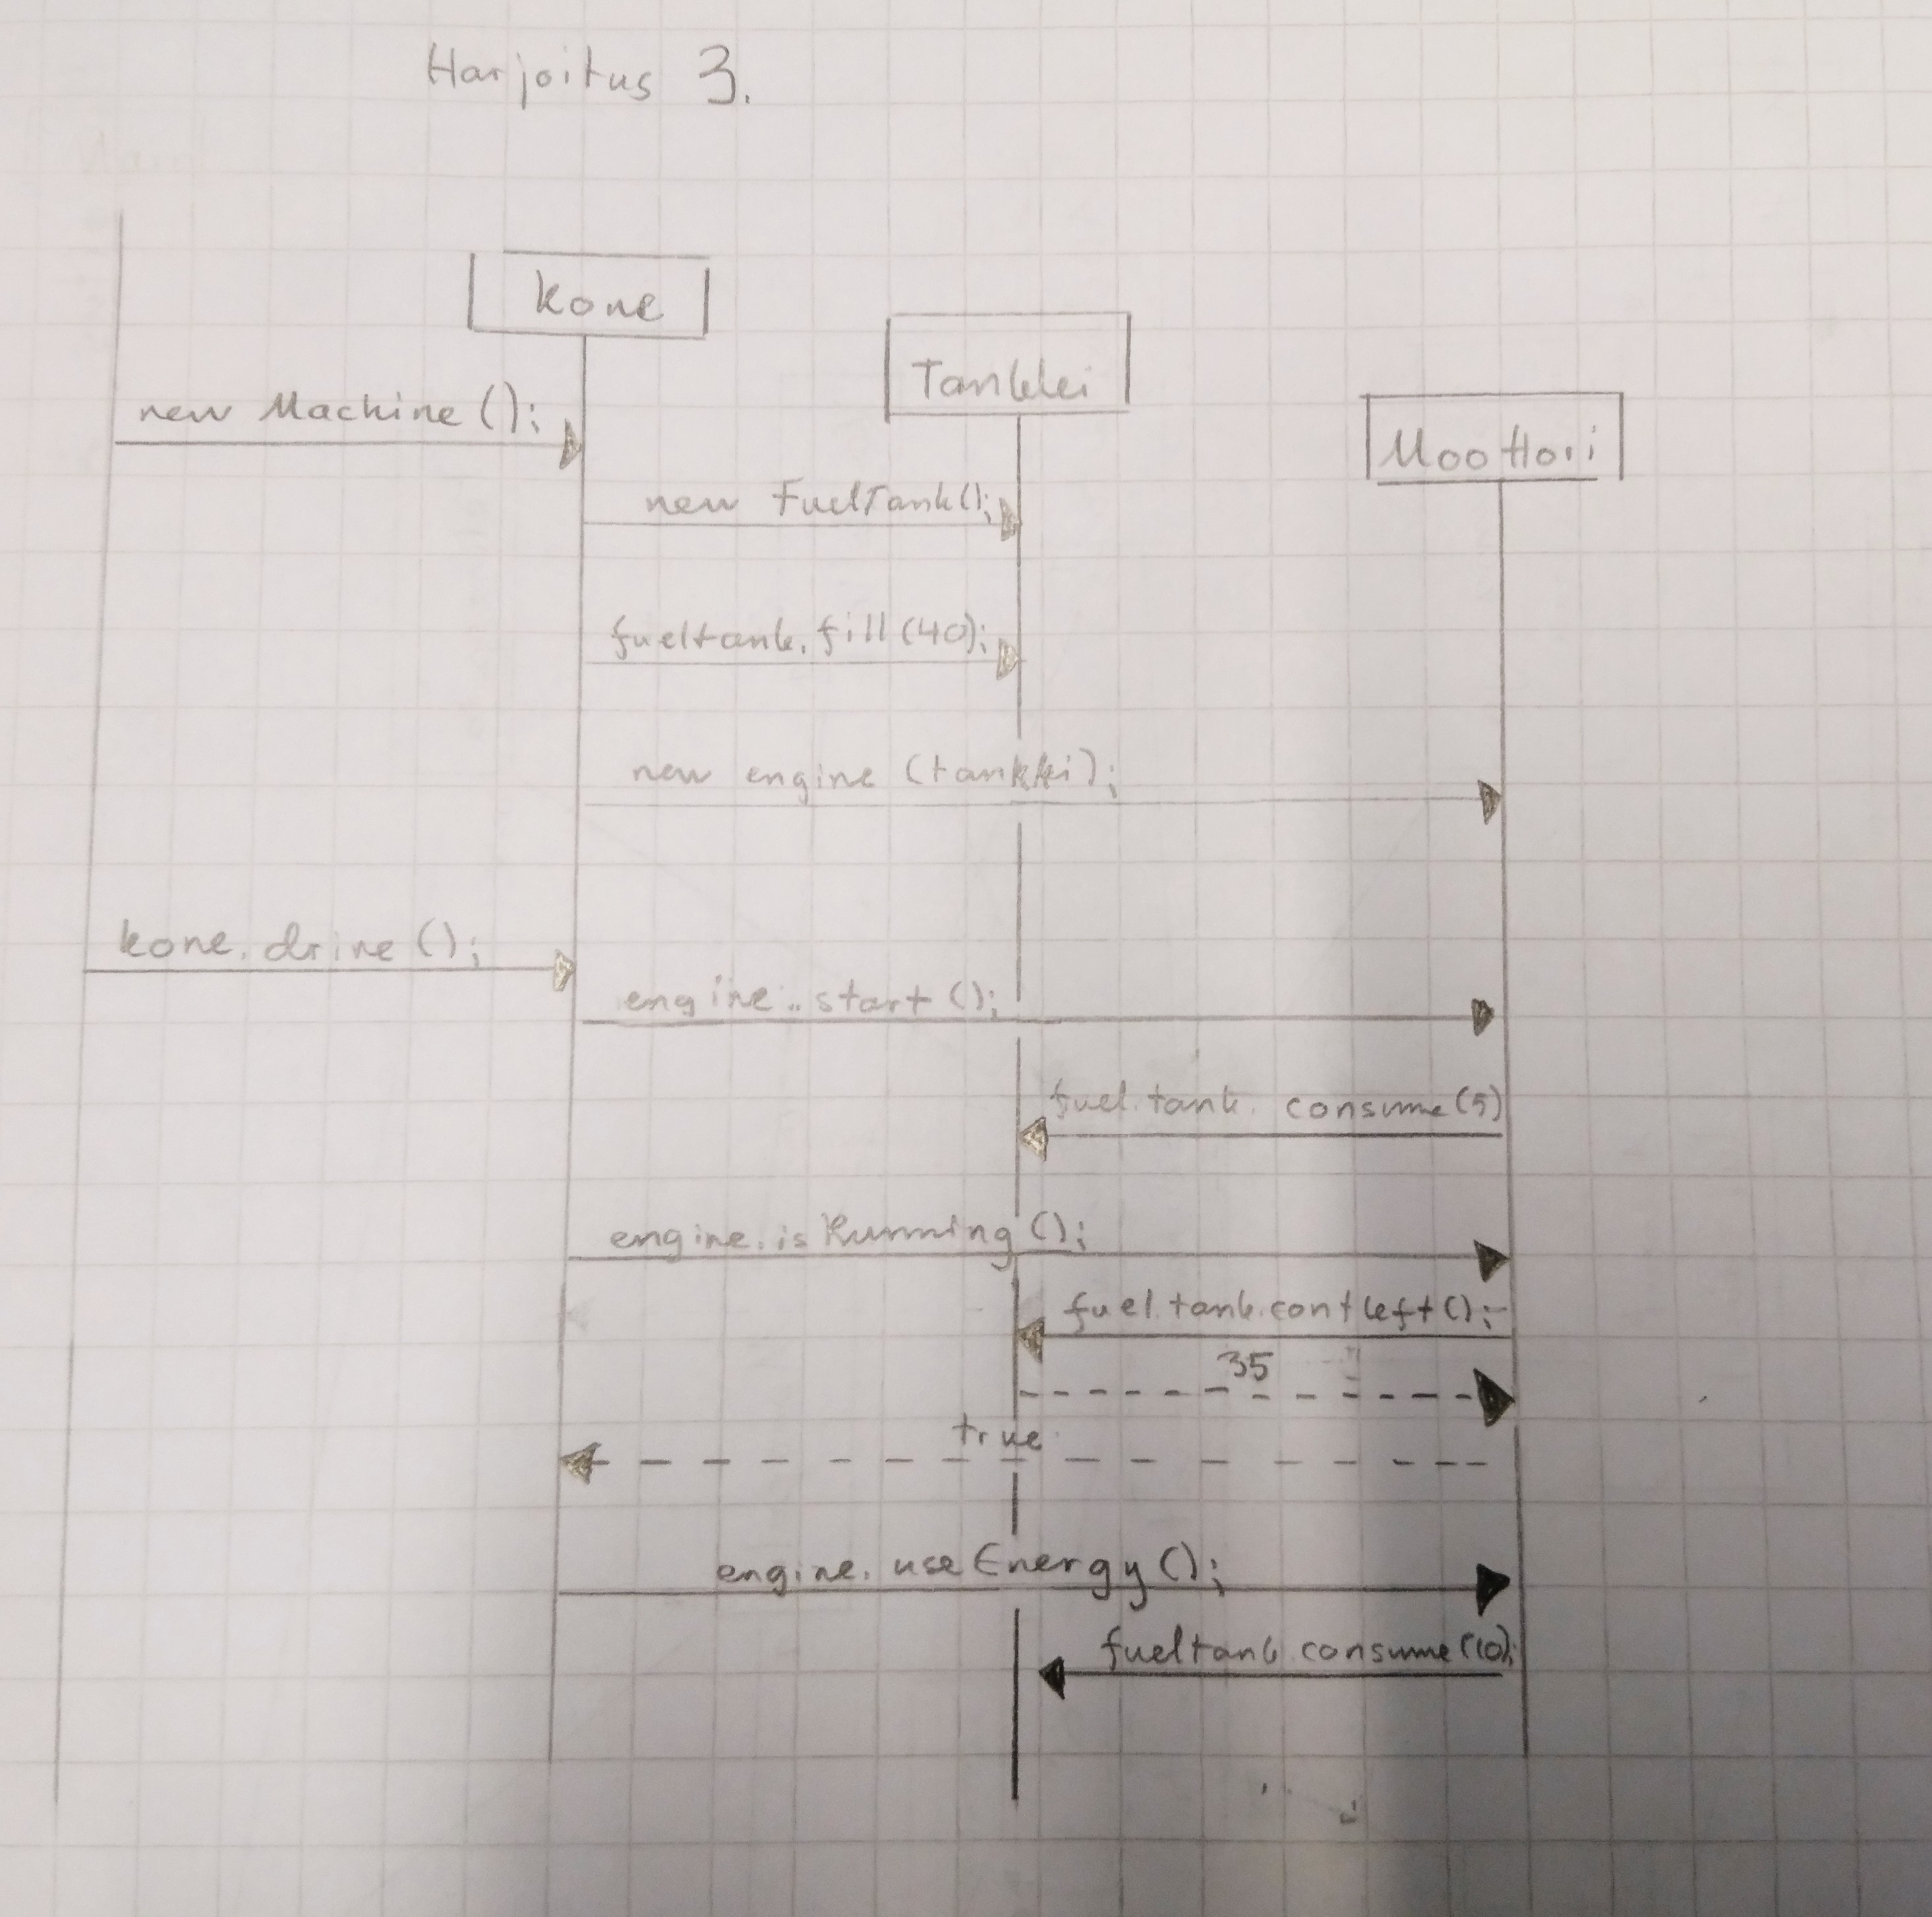 Harjoitus 3.
kone
Tankki
Moottori
new Machine();
new FuelTank();
fueltank.fill(40);
new engine (tankki);
kone.drive();
engine..start();
fuel.tank. consume(5)
engine.isRunning();
fuel.tank.contLeft();
35
true
engine.useEnergy();
fueltank.consume(10);